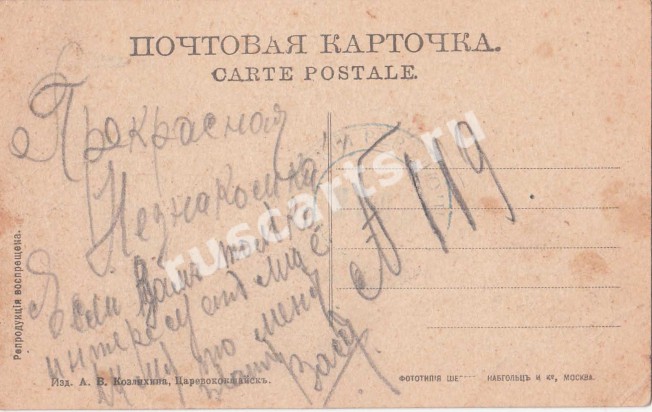 ПОЧТОВАЯ КАРТОЧКА.
CARTE POSTALE.
Прекрасная
Незнакомка!
Если Вамъ только
интересу
про меня
Вася
№ 119
ruscarts.ru
Репродукція воспрещена.
Изд. А. В. Козлихина, Царевококшайскъ.
ФОТОТИПІЯ ШЕ НАБГОЛЬЦЪ И Кº, МОСКВА.